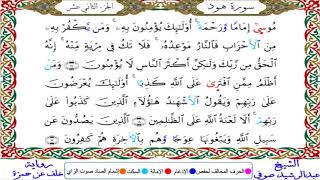 سورة هود
الجزء الثاني عشر
مُوسَىٰٓ إِمَامًا وَرَحْمَةً ۚ أُوْلَٰٓئِكَ يُؤْمِنُونَ بِهِۦ ۚ وَمَن يَكْفُرْ بِهِۦ
مِنَ ٱلْأَحْزَابِ فَٱلنَّارُ مَوْعِدُهُۥ ۚ فَلَا تَكُ فِى مِرْيَةٍ مِّنْهُ ۚ إِنَّهُ
ٱلْحَقُّ مِن رَّبِّكَ وَلَٰكِنَّ أَكْثَرَ ٱلنَّاسِ لَا يُؤْمِنُونَ وَمَنْ
أَظْلَمُ مِمَّنِ ٱفْتَرَىٰ عَلَى ٱللَّهِ كَذِبًا ۚ أُوْلَٰٓئِكَ يُعْرَضُونَ
عَلَىٰ رَبِّهِمْ وَيَقُولُ ٱلْأَشْهَٰدُ هَٰٓؤُلَآءِ ٱلَّذِينَ كَذَبُواْ عَلَىٰ
رَبِّهِمْ ۚ أَلَا لَعْنَةُ ٱللَّهِ عَلَى ٱلظَّٰلِمِينَ ٱلَّذِينَ يَصُدُّونَ عَن
سَبِيلِ ٱللَّهِ وَيَبْغُونَهَا عِوَجًا وَهُم بِٱلْأَخِرَةِ هُمْ كَٰفِرُونَ
الشيخ
عبدالرشيد صوفي
الحرف المخالف لحفص
الإدغام
الإمالة
السكت
إشمام الصاد صوت الزاي
رواية
خلف عن حمزة